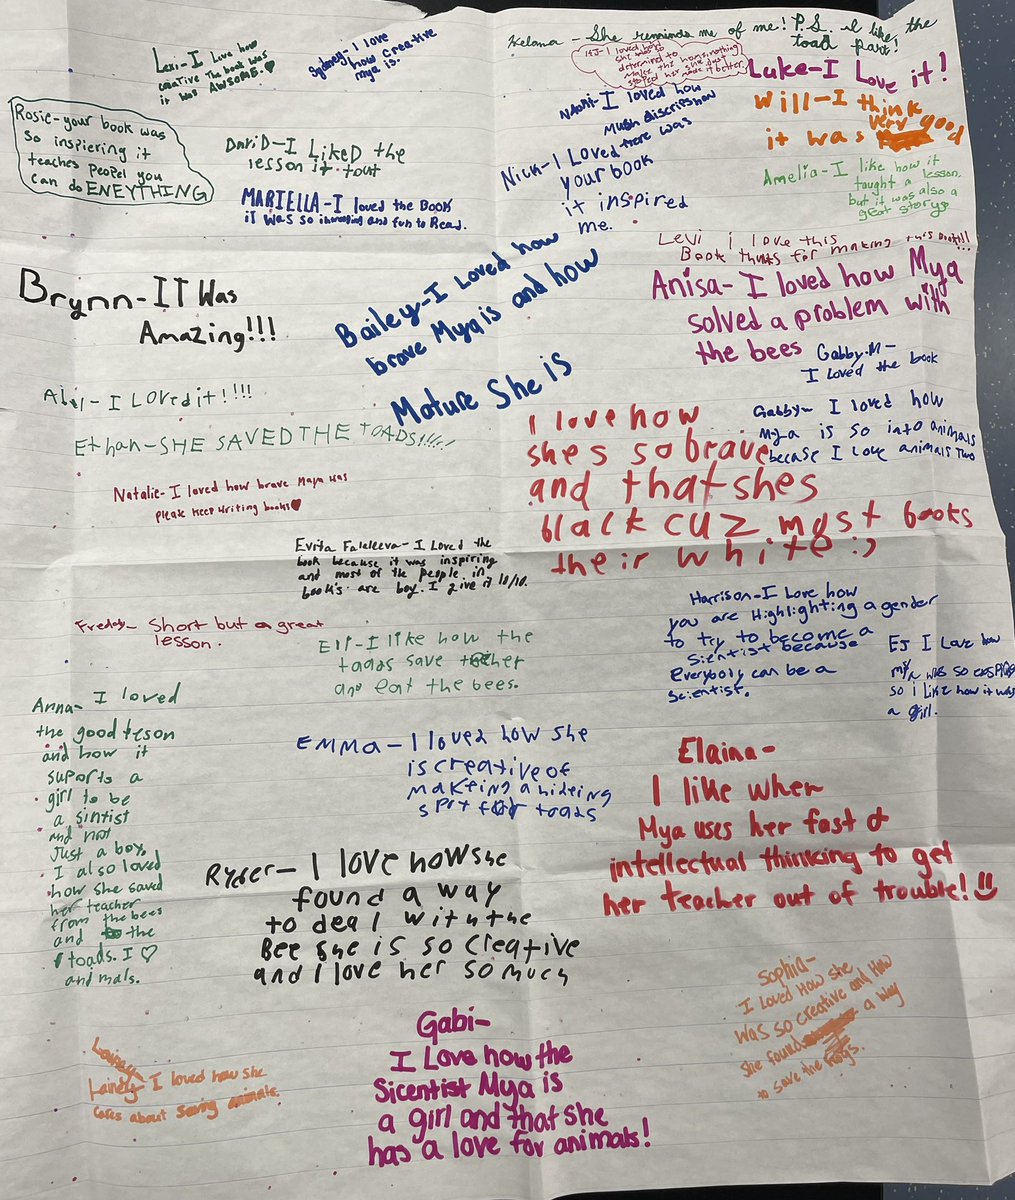 Lexi-I Love how
creative The book was
it was AWSOME.
Sydney-I love
how creative
mya is.
Kelana - She reminds me of me! P.S. I like the
toad part!
HJ-I loved how
she was so
determined to
make the hons, nothing
stoped her she just
made it better.
Luke-I Love it!
Rosie-your book was
so inspiering it
teaches peopel you
can do ENEYTHING
DaviD-I LiKeD the
lesson it tout
MARIELLA-I loved the Book
it was so interesing and fun to Read.
Naomi-I loved how
Mush discripshon
there was
Nick-I Loved
your book
it inspired
me.
Will-I think
it was very good
Amelia-I like how it
taught a lesson,
but it was also a
great story
Levi i love this
Book thinks for making this book!!!
Brynn-IT Was
Amazing!!!
Bailey-I Loved how
brave Mya is and how
Mature She is
Anisa-I loved how Mya
solved a problem with
the bees
Gabby.M-
I Loved the book
Abel-I LOVed it!!!!
Ethan-SHE SAVED THE TOADS!!!!!
Natalie-I loved how brave Maya was
please keep writing books
I love how
shes so brave
and that shes
black cuz most books
their white :)
Gabby- I loved how
Mya is so into animals
becase I love animals two
Evita Faleleeva-I Loved the
book because it was inspiring
and most of the people in
book's are boy. I give it 10/10.
Freddy- Short but a great
lesson.
Eli-I like how the
toads save teacher
and eat the bees.
Harrison-I Love how
you are Highlighting a gender
to try to become a
Sientist because
Everybody can be a
scientist.
EJ I Love how
mya was so
so i like how it was
a girl.
Anna-I loved
the good leson
and how it
suports a
girl to be
a sintist
and not
Just a boy,
I also loved
how she saved
her teacher
from the bees
and the
toads. I ♡
animals.
EMMA-I loved how she
is creative of
makeing a hideing
spot for toads
Elaina-
I like when
Mya uses her fast &
intellectual thinking to get
her teacher out of trouble!
Ryder-I love how she
found a way
to deal with the
Bee she is so creative
and I love her so much
Sophia-
I Loved How she
was so creative and How
she found a way
to save the frogs.
Gabi-
I Love how the
Sicentist Mya is
a girl and that she
has a love for animals!
Lainey-I loved how she
cares about saving animals.